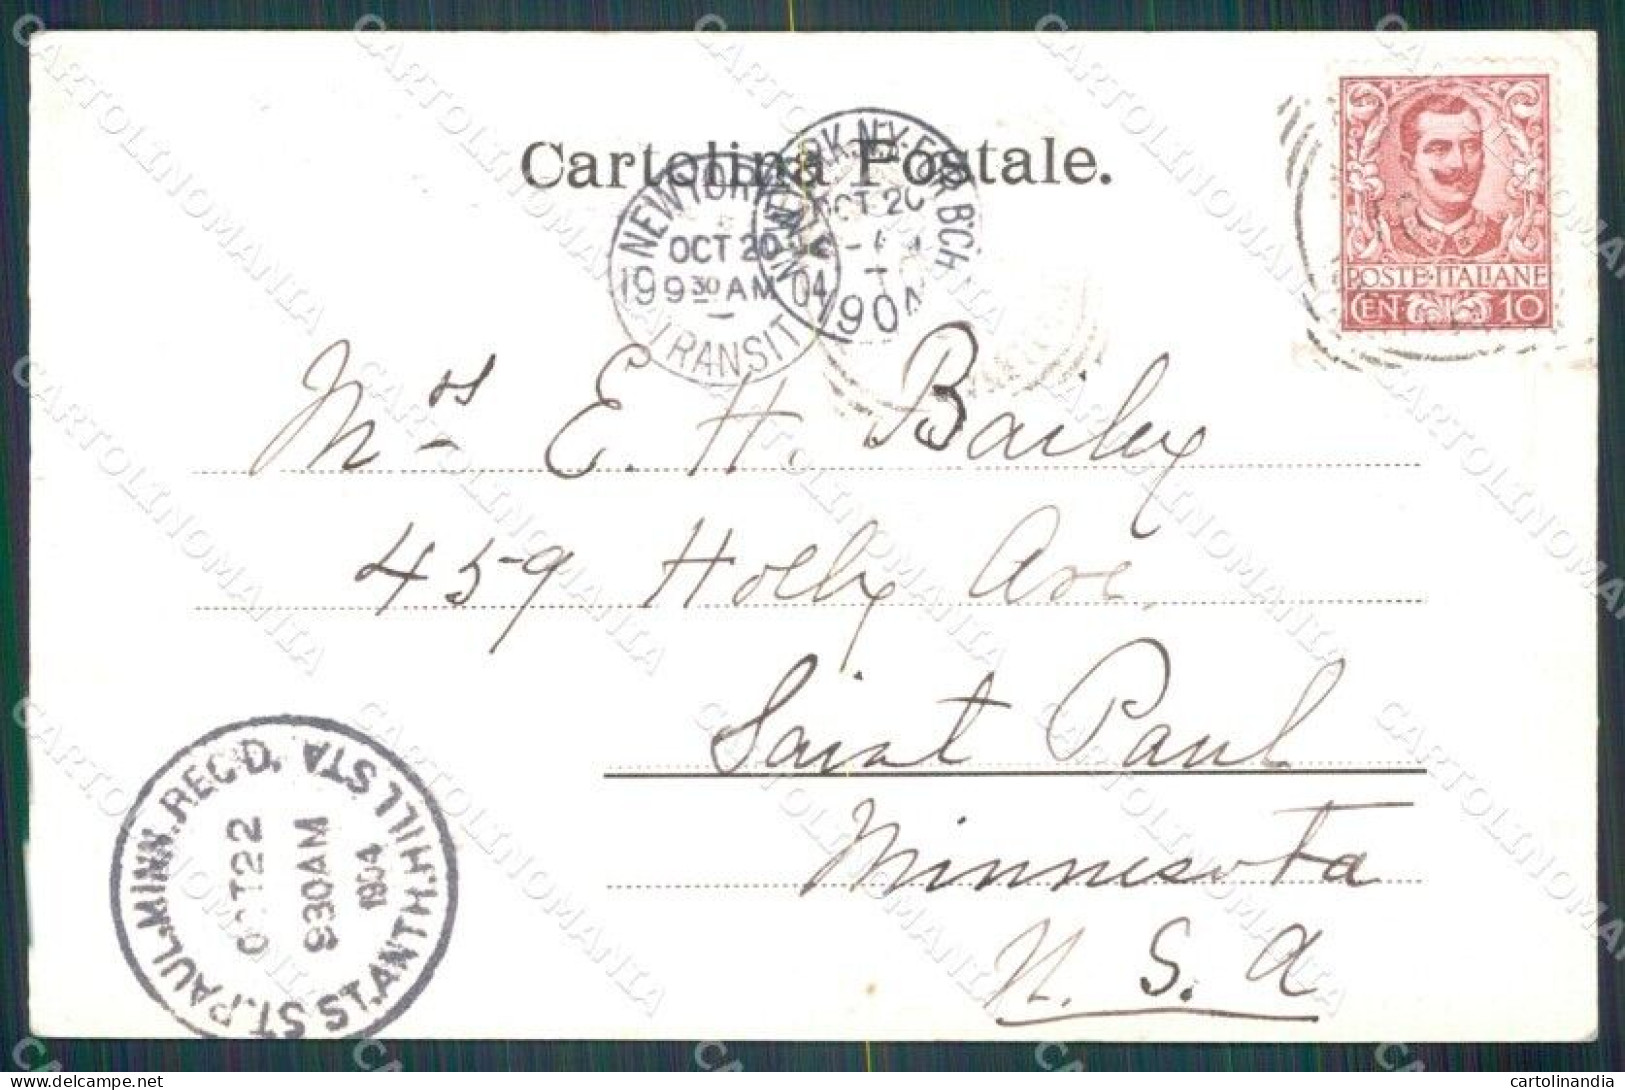 Cartolina Postale.
NEW YORK
OCT 20
19 9 30 AM 04
TRANSIT
OCT 20
1904
POSTE·ITALIANE
CEN· 10
Mrs E. H. Bailey
459 Holly Ave.
Saint Paul
Minnesota
U. S. A
ST.PAUL.MINN.REC'D.
ST.ANTH'HILL STA
OCT 22
930AM
1904
CARTOLINOMANIA
delcampe.net
cartolinandia